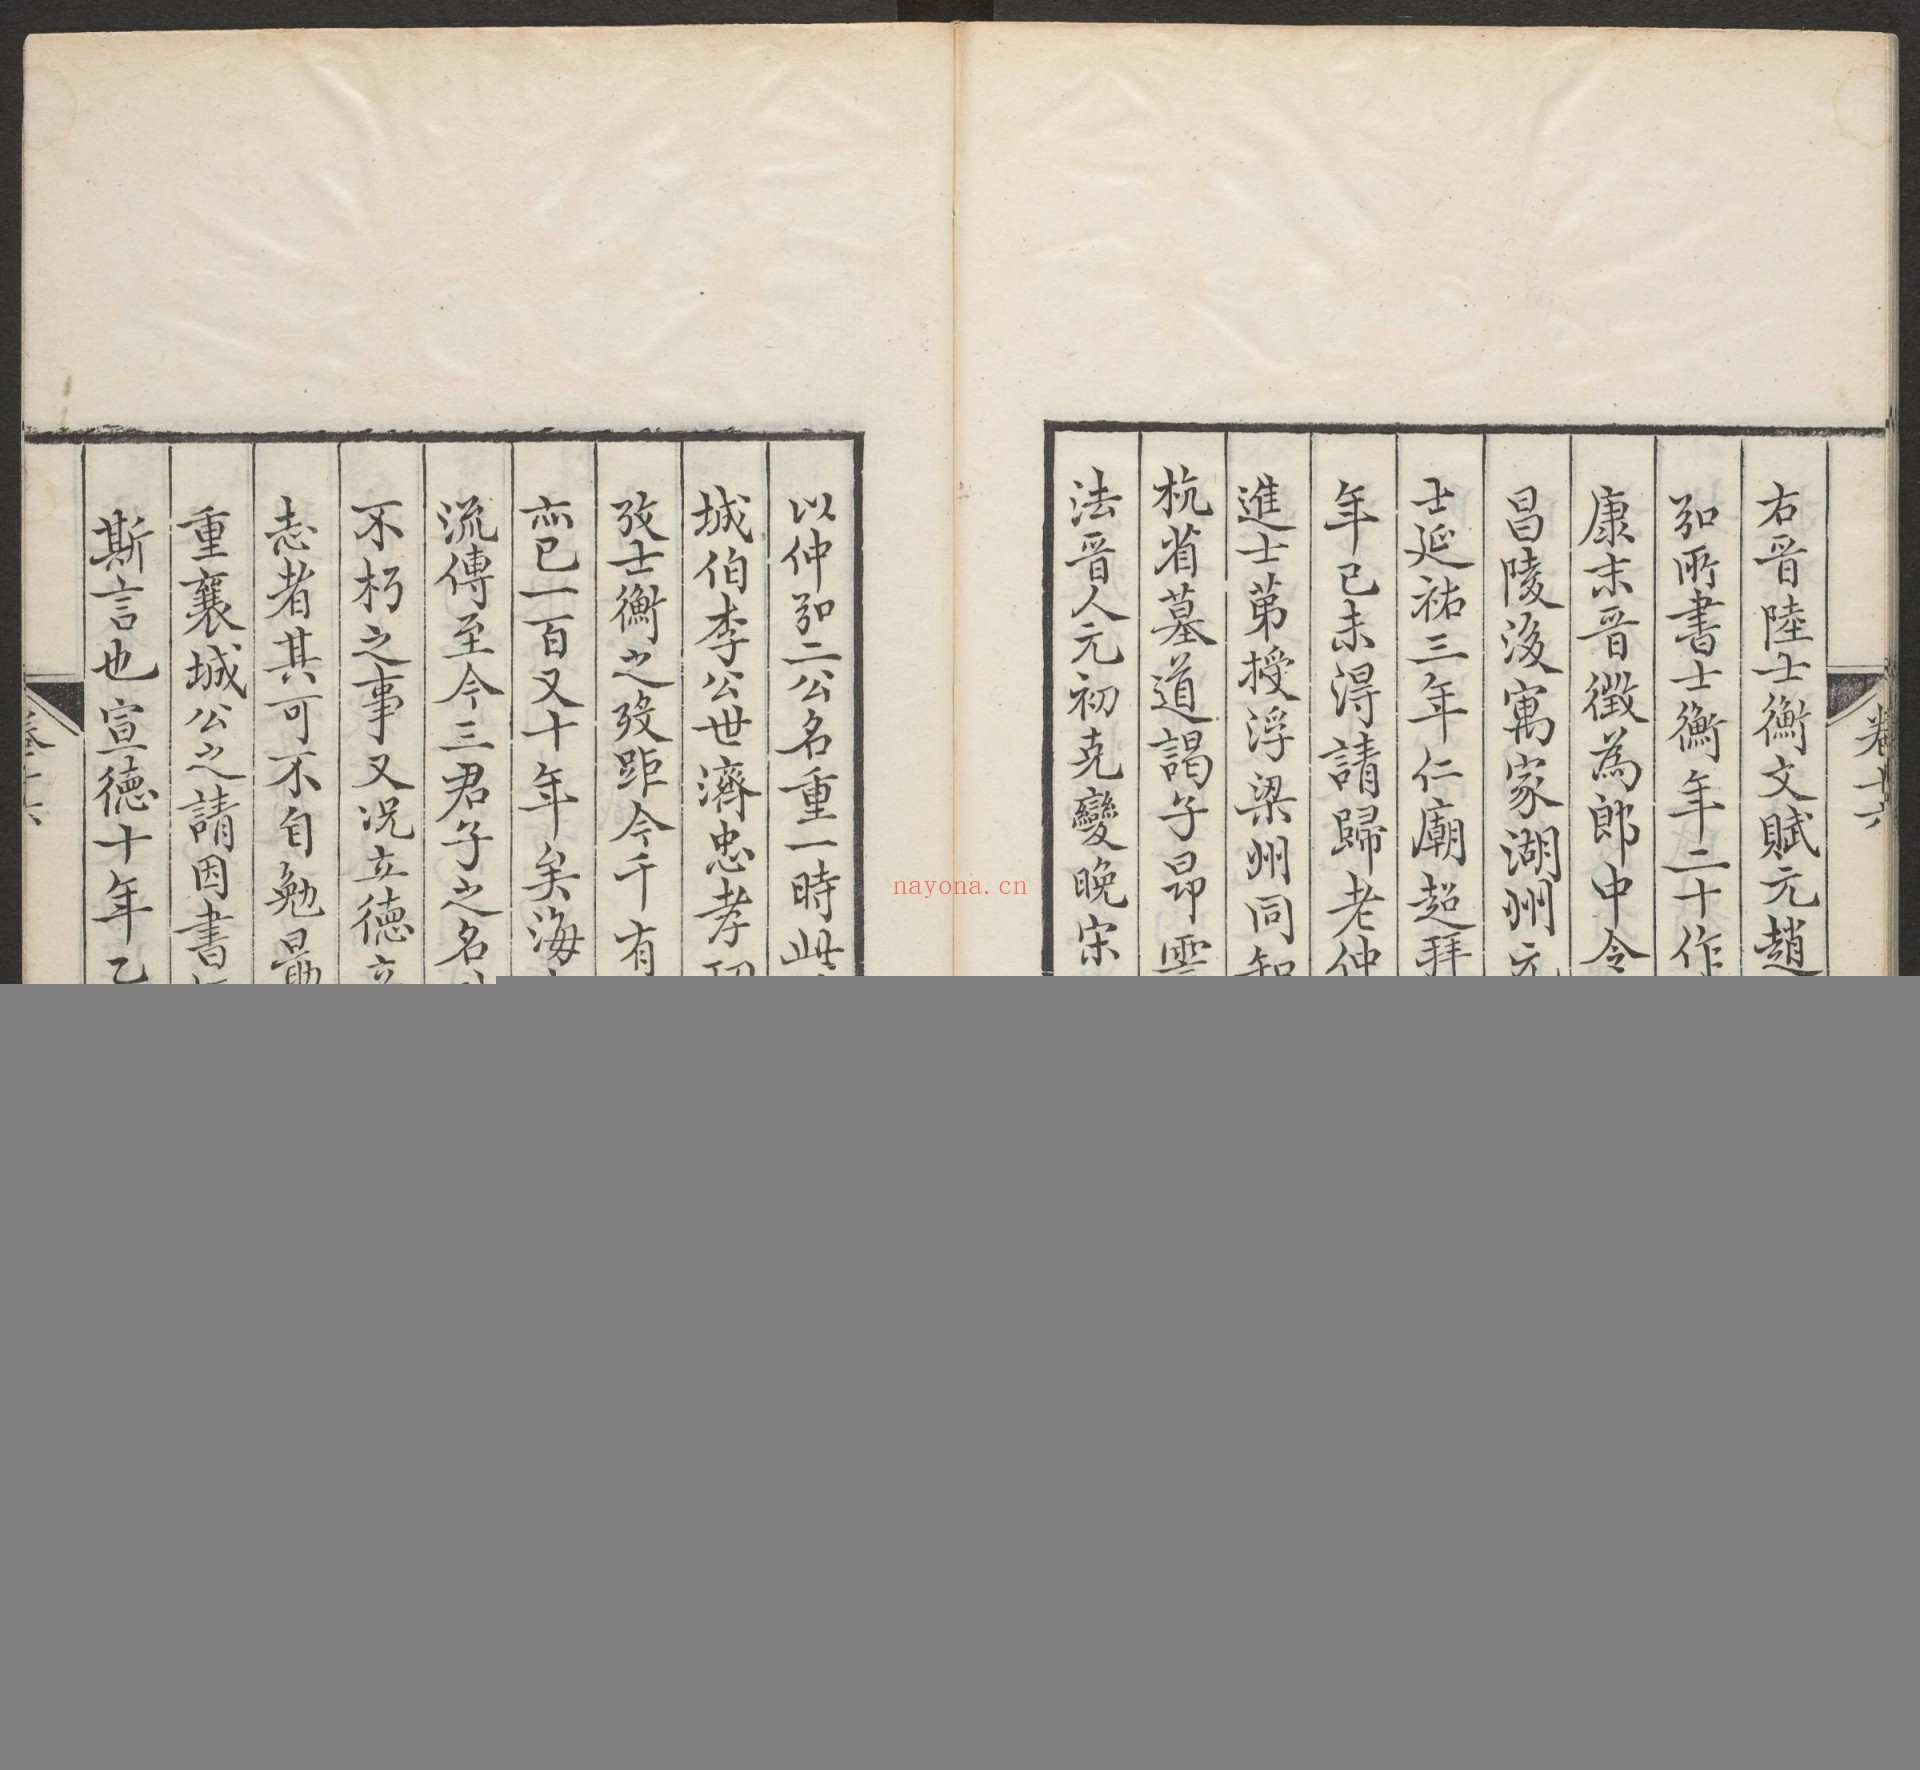 卷十六
右晉陸士衡文賦元趙
弘所書士衡年二十作
康末晉徵為郎中令
昌陵後寓家湖州元
士延祐三年仁廟超拜
年己未得請歸老仲
進士第授浮梁州同知
杭省墓道謁子昂雲
法晉人元初克變晚宋
nayona.cn
以仲弘二公名重一時此
城伯李公世濟忠孝
攷士衡之歿距今千有
亦已一百又十年矣海
流傳至今三君子之名
不朽之事又況立德立
志者其可不自勉最
重襄城公之請因書
斯言也宣德十年乙
卷十六